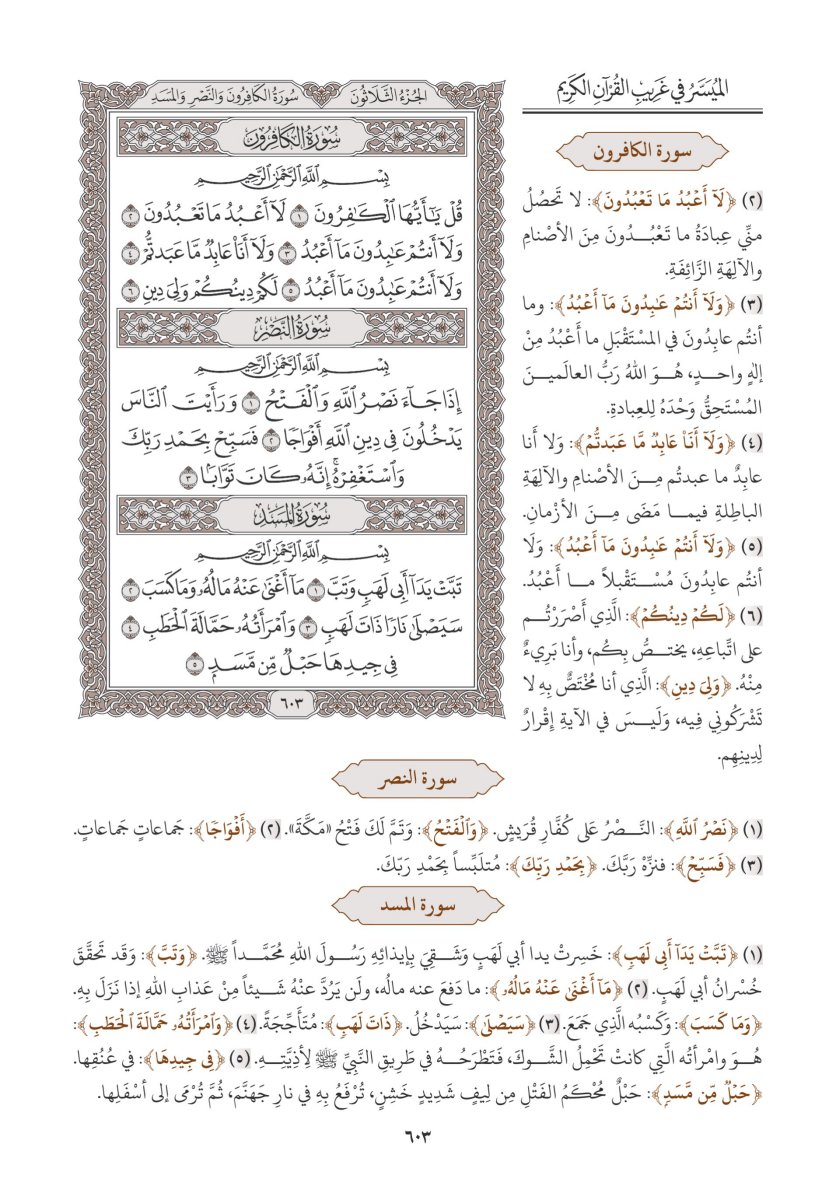 الميُسَّرُ في غَرِيبِ القُرْآنِ الكَرِيم
الجُزْءُ الثَّلَاثُونَ
سُورَةُ الكَافِرُونَ وَالنَّصْرِ وَالمَسَدِ
سُورَةُ الكَافِرُونَ
بِسْمِ اللَّهِ الرَّحْمَٰنِ الرَّحِيمِ
قُلْ يَٰٓأَيُّهَا ٱلْكَٰفِرُونَ ١ لَآ أَعْبُدُ مَا تَعْبُدُونَ ٢
وَلَآ أَنتُمْ عَٰبِدُونَ مَآ أَعْبُدُ ٣ وَلَآ أَنَا۠ عَابِدٌ مَّا عَبَدتُّمْ ٤
وَلَآ أَنتُمْ عَٰبِدُونَ مَآ أَعْبُدُ ٥ لَكُمْ دِينُكُمْ وَلِيَ دِينِ ٦
سُورَةُ النَّصْرِ
بِسْمِ اللَّهِ الرَّحْمَٰنِ الرَّحِيمِ
إِذَا جَآءَ نَصْرُ ٱللَّهِ وَٱلْفَتْحُ ١ وَرَأَيْتَ ٱلنَّاسَ
يَدْخُلُونَ فِي دِينِ ٱللَّهِ أَفْوَاجًا ٢ فَسَبِّحْ بِحَمْدِ رَبِّكَ
وَٱسْتَغْفِرْهُ ۚ إِنَّهُۥ كَانَ تَوَّابًۢا ٣
سُورَةُ المَسَدِ
بِسْمِ اللَّهِ الرَّحْمَٰنِ الرَّحِيمِ
تَبَّتْ يَدَآ أَبِي لَهَبٍ وَتَبَّ ١ مَآ أَغْنَىٰ عَنْهُ مَالُهُۥ وَمَا كَسَبَ ٢
سَيَصْلَىٰ نَارًا ذَاتَ لَهَبٍ ٣ وَٱمْرَأَتُهُۥ حَمَّالَةَ ٱلْحَطَبِ ٤
فِي جِيدِهَا حَبْلٌ مِّن مَّسَدٍۭ ٥
٦٠٣
سورة الكافرون
(٢) ﴿لَآ أَعْبُدُ مَا تَعْبُدُونَ﴾: لا تَحصُلُ
منِّي عِبادَةُ ما تَعْبُـدُونَ مِنَ الأصْنامِ
والآلِهَةِ الزَّائِفَةِ.
(٣) ﴿وَلَآ أَنتُمْ عَٰبِدُونَ مَآ أَعْبُدُ﴾: وما
أنتُم عابِدُونَ في المسْتَقْبَلِ ما أَعْبُدُ مِنْ
إلهٍ واحـدٍ، هُـوَ اللهُ رَبُّ العالَمِيـنَ
المُسْتَحِقُّ وَحْدَهُ لِلعِبادةِ.
(٤) ﴿وَلَآ أَنَا۠ عَابِدٌ مَّا عَبَدتُّمْ﴾: وَلا أَنا
عابِدٌ ما عبدتُم مِـنَ الأصْنامِ والآلِهَةِ
الباطِلةِ فيمـا مَضَى مِـنَ الأزْمانِ.
(٥) ﴿وَلَآ أَنتُمْ عَٰبِدُونَ مَآ أَعْبُدُ﴾: وَلَا
أنتُم عابِدُونَ مُسْـتَقْبلاً مـا أَعْبُدُ.
(٦) ﴿لَكُمْ دِينُكُمْ﴾: الَّذِي أَصْرَرْتُـم
على اتِّباعِهِ، يختصُّ بِكُم، وأنا بَرِيءٌ
مِنْهُ. ﴿وَلِيَ دِينِ﴾: الَّذِي أنا مُخْتَصٌّ بِهِ لا
تَشْرَكُونِي فِيه، وَلَيسَ في الآيةِ إقْرارٌ
لِدِينِهِم.
سورة النصر
(١) ﴿نَصْرُ ٱللَّهِ﴾: النَّـصْرُ عَلى كُفَّارِ قُرَيشٍ. ﴿وَٱلْفَتْحُ﴾: وَتَمَّ لَكَ فَتْحُ «مَكَّةَ». (٢) ﴿أَفْوَاجًا﴾: جَماعاتٍ جَماعاتٍ.
(٣) ﴿فَسَبِّحْ﴾: فنزِّهْ رَبَّكَ. ﴿بِحَمْدِ رَبِّكَ﴾: مُتلَبِّساً بِحَمْدِ رَبِّكَ.
سورة المسد
(١) ﴿تَبَّتْ يَدَآ أَبِي لَهَبٍ﴾: خَسِرتْ يدا أبي لَهَبٍ وَشَقِيَ بِإيذائِهِ رَسُولَ اللهِ مُحَمَّـداً ﷺ. ﴿وَتَبَّ﴾: وَقد تَحقَّقَ
خُسْرانُ أبي لَهَبٍ. (٢) ﴿مَآ أَغْنَىٰ عَنْهُ مَالُهُۥ﴾: ما دَفعَ عنه مالُه، ولَن يَرُدَّ عنْهُ شَـيئاً مِنْ عَذابِ اللهِ إذا نَزَلَ بِهِ.
﴿وَمَا كَسَبَ﴾: وَكَسْبُه الَّذِي جَمَعَ. (٣) ﴿سَيَصْلَىٰ﴾: سَيَدْخُلُ. ﴿ذَاتَ لَهَبٍ﴾: مُتَأَجِّجَةً. (٤) ﴿وَٱمْرَأَتُهُۥ حَمَّالَةَ ٱلْحَطَبِ﴾:
هُـوَ وامْرأتُه الَّتِي كانتْ تَحْمِلُ الشَّـوكَ، فَتَطْرَحُـهُ في طَرِيقِ النَّبِيِّ ﷺ لِأذِيَّتِـهِ. (٥) ﴿فِي جِيدِهَا﴾: في عُنُقِها.
﴿حَبْلٌ مِّن مَّسَدٍۭ﴾: حَبْلٌ مُحْكَمُ الفَتْلِ مِن لِيفٍ شَدِيدٍ خَشِنٍ، تُرْفَعُ بِهِ في نارِ جَهَنَّمَ، ثُمَّ تُرْمَى إلى أسْفَلِها.
٦٠٣